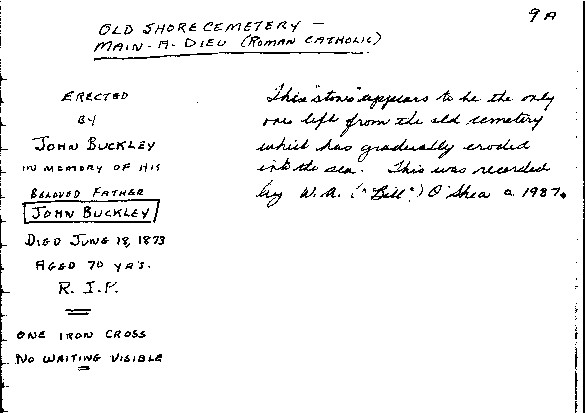 9A
OLD SHORE CEMETERY -
MAIN-A-DIEU (ROMAN CATHOLIC)
ERECTED
BY
JOHN BUCKLEY
IN MEMORY OF HIS
BELOVED FATHER
JOHN BUCKLEY
DIED JUNE 18, 1873
AGED 70 YRS.
R. I. P.
ONE IRON CROSS
NO WAITING VISIBLE
This "stone" appears to be the only
one left from the old cemetery
which has gradually eroded
into the sea. This was recorded
by W. A. ("Bill") O'Shea c. 1987.